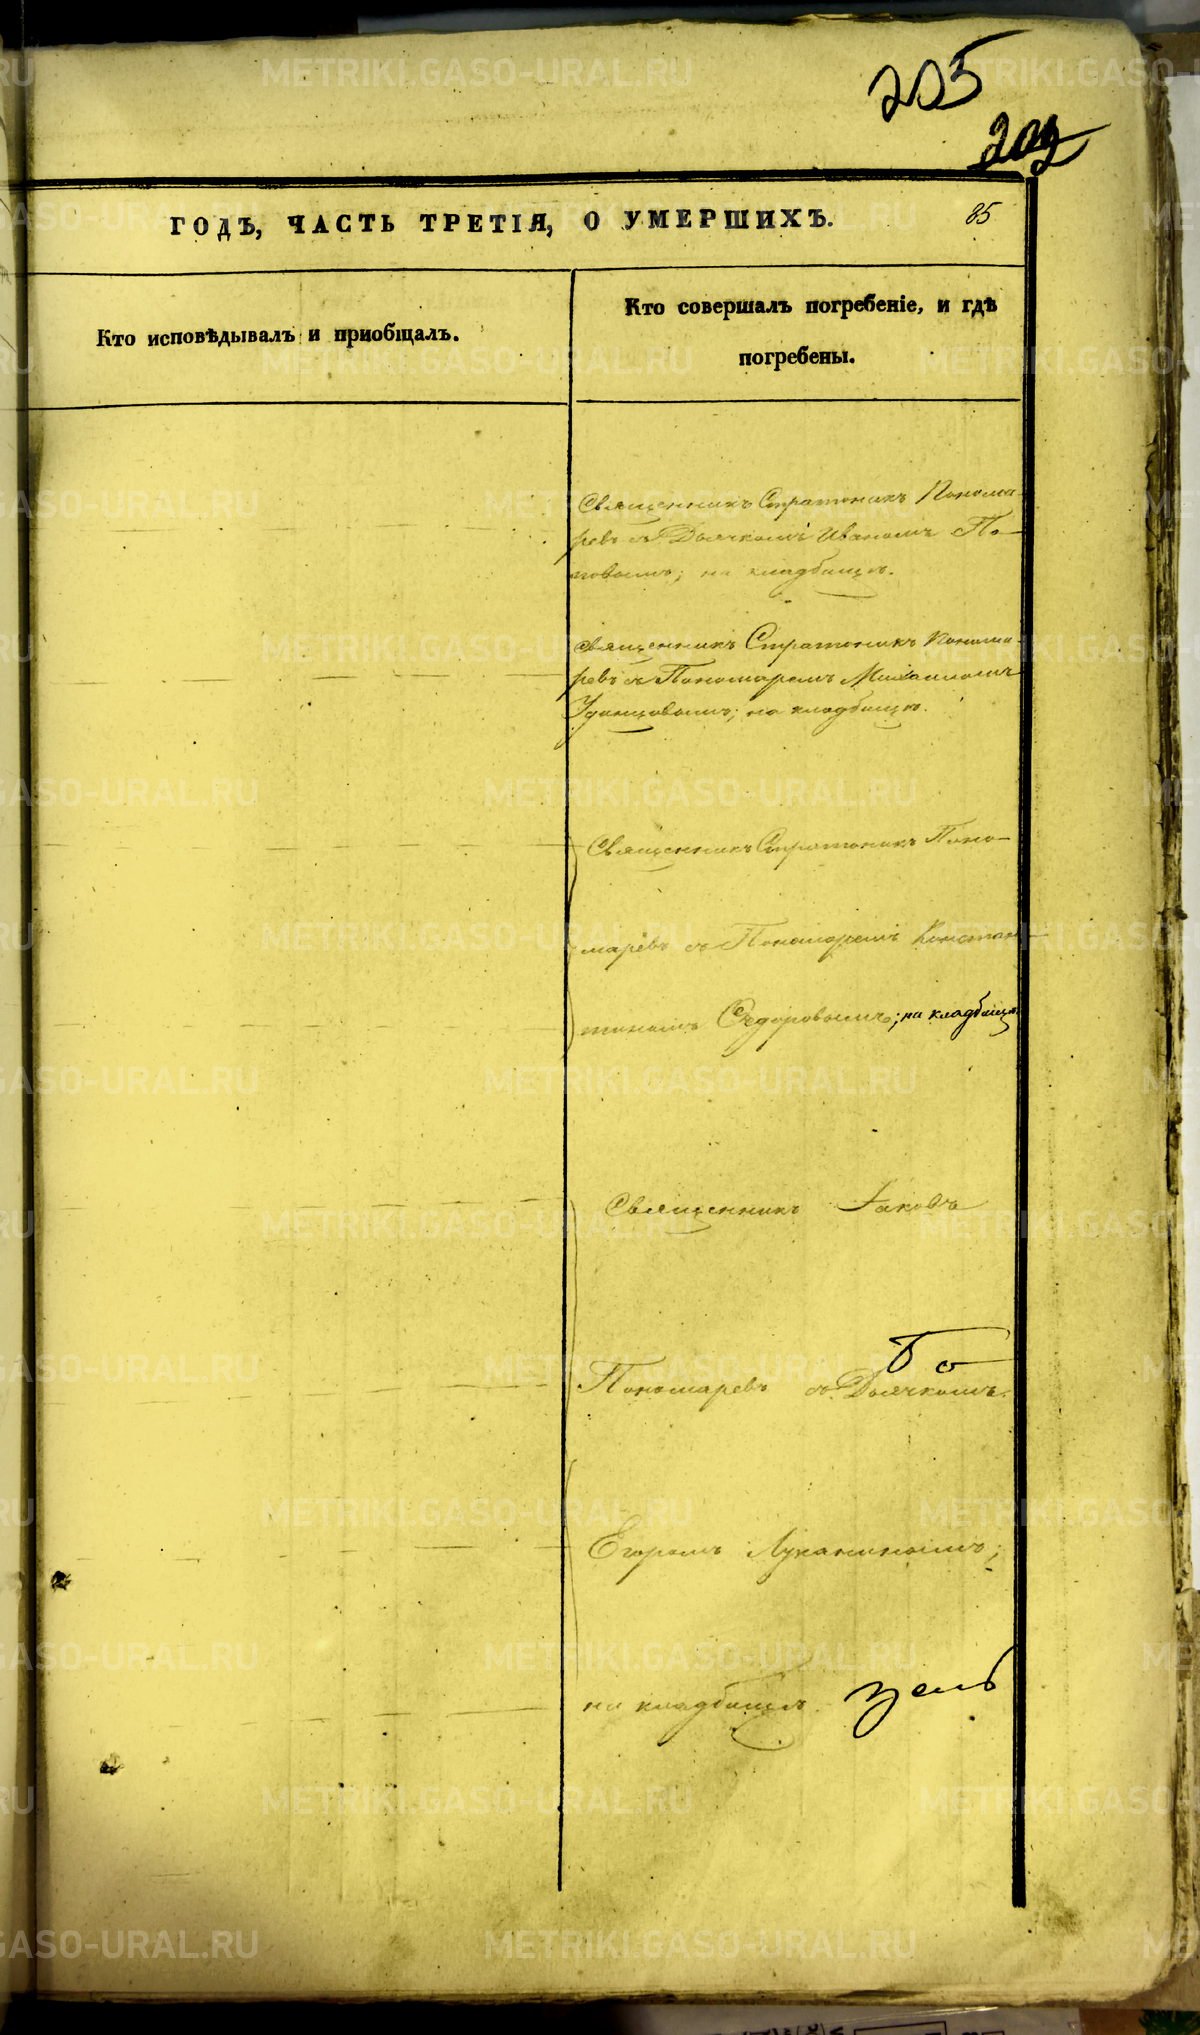 205
202
ГОДЪ, ЧАСТЬ ТРЕТІЯ, О УМЕРШИХЪ.
85
Кто исповѣдывалъ и пріобщалъ.
Кто совершалъ погребеніе, и гдѣ
погребены.
Священникъ Стратоникъ Понома-
ревъ съ Дьячкомъ Иваномъ По-
повымъ; на кладбищѣ.
Священникъ Стратоникъ Понома-
ревъ съ Пономаремъ Михаиломъ
Удинцовымъ; на кладбищѣ.
Священникъ Стратоникъ Поно-
маревъ съ Пономаремъ Констан-
тиномъ Сѣдоровымъ; на кладбищѣ.
Священникъ Іаковъ
Пономаревъ съ Дьячкомъ
Егоромъ Луканинымъ;
на кладбищѣ.
METRIKI.GASO-URAL.RU